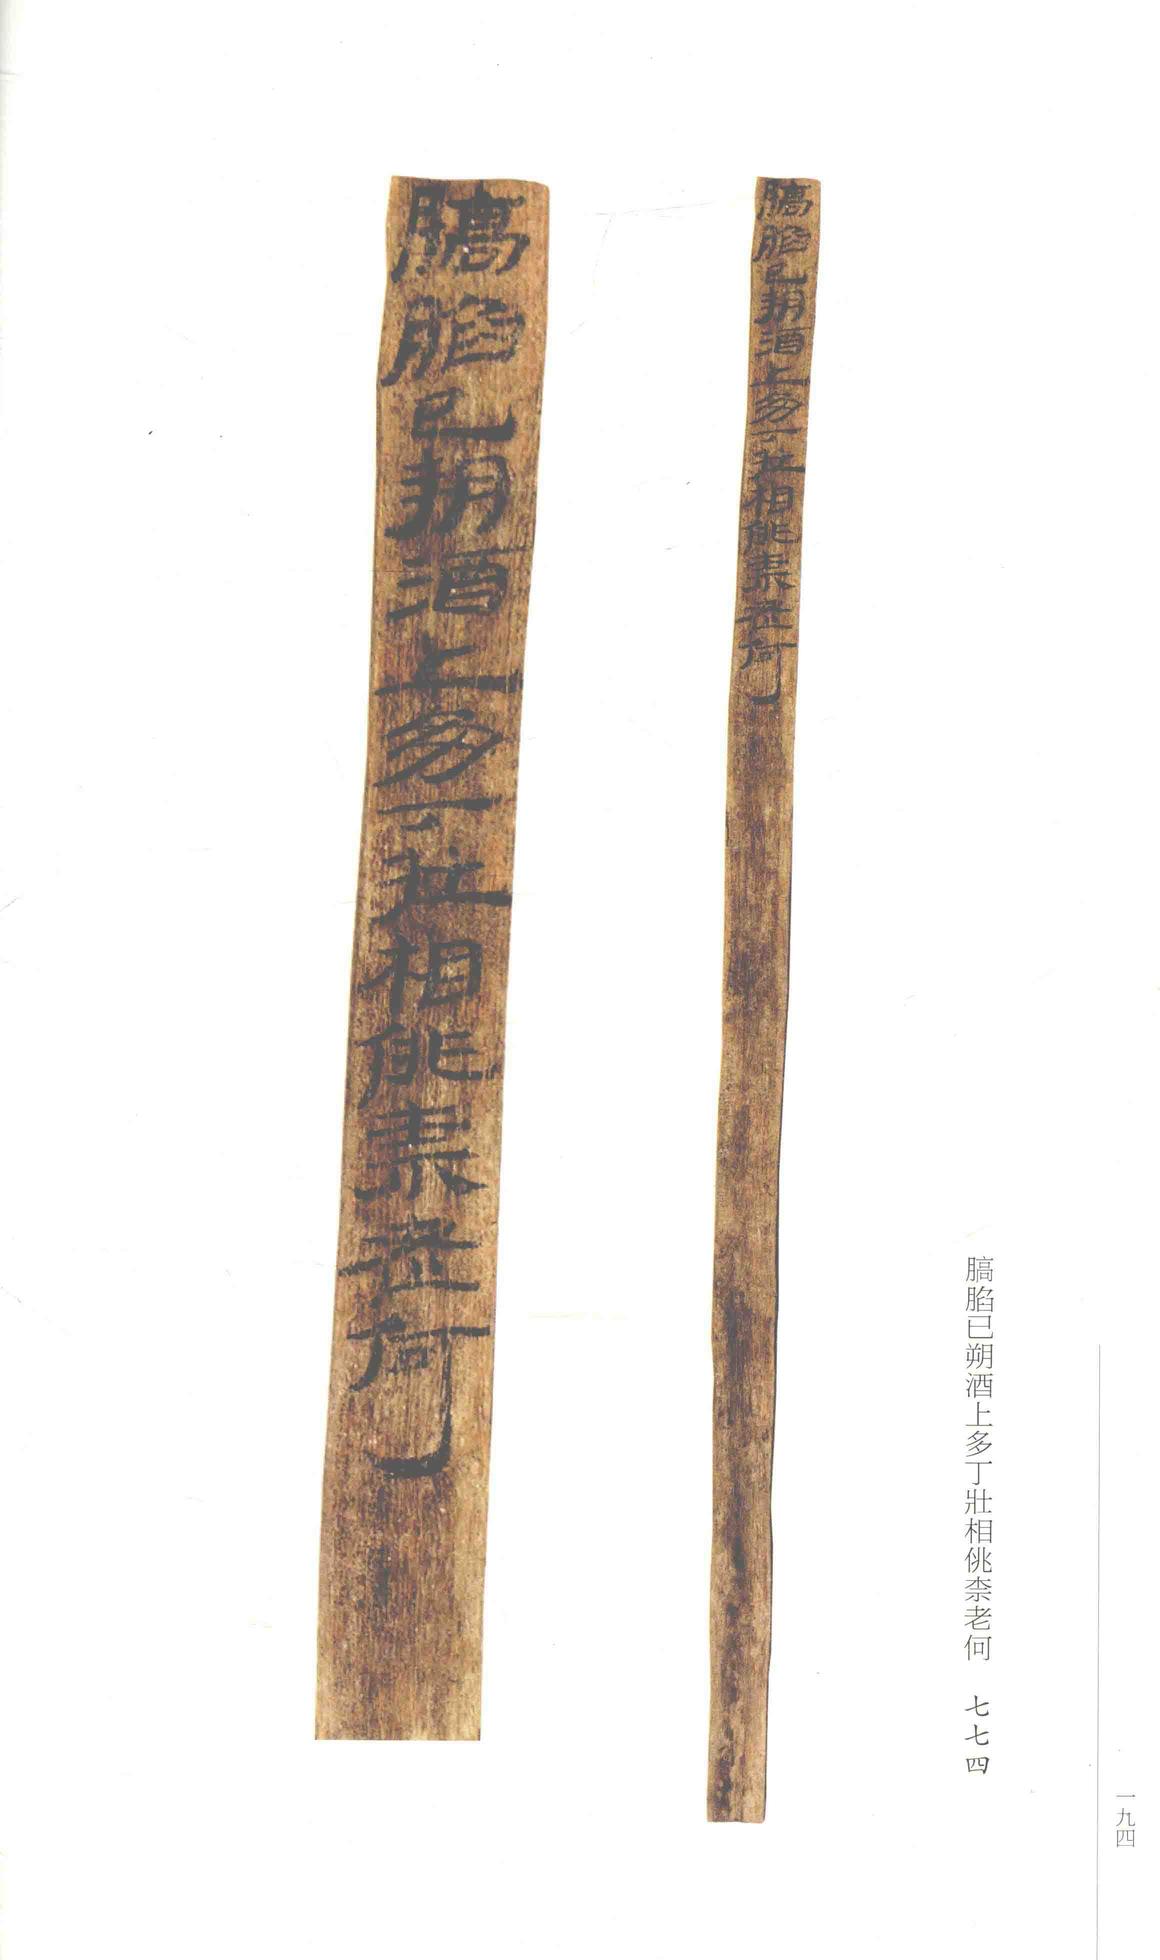 膈㬵已朔酒上多丁壯相佻柰老何 七七四
一九四
膈㬵已朔酒上多丁壯相佻柰老何
膈㬵已朔酒上多丁壯相佻柰老何